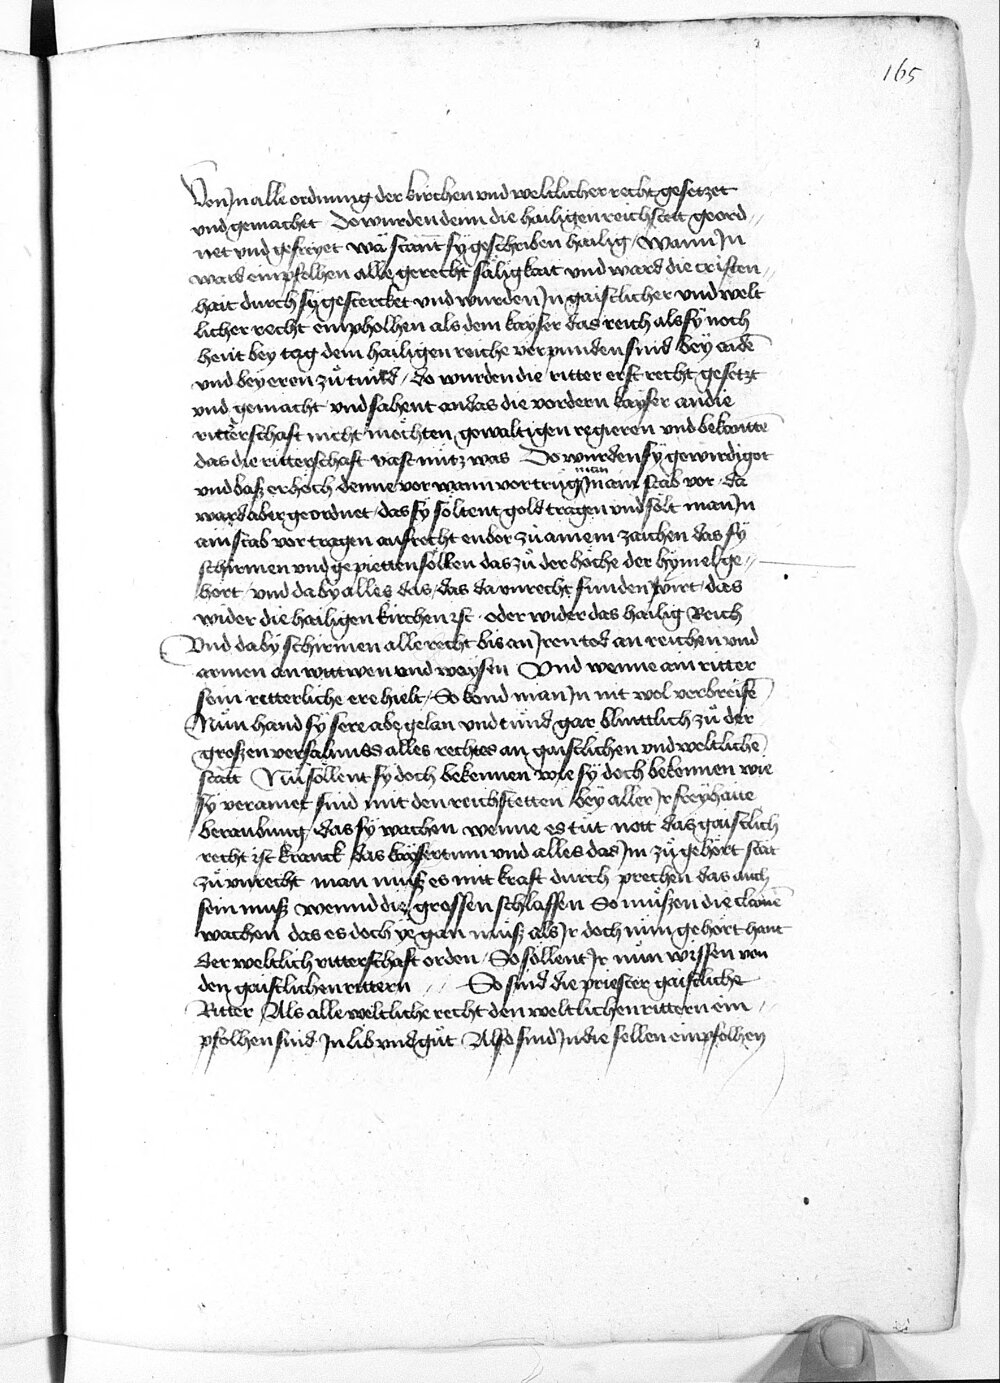 165
Von In alle ordnung der kirchen vnd weltlicher recht gesetzet
vnd gemachet Do wurden denn die hailigen reichstett geord„
net vnd gefreyet wā stant sy geschriben hailig / Wann In
ward empfelhen alle gerecht säligkait vnd ward die cristen„
hait durch sy gesterckt vnd wurden In gaistlicher vnd welt
licher recht empholhen als dem kayser das reich als sy noch
heut bey tag dem hailigen reiche verpunden sind bey aidē
vnd bey eren zů tůnd / do wurden die ritter erst recht gesetzt
vnd gemacht vnd sahent an das die vordern kayser an die
ritterschaft nicht möchten gewaltigen regieren vnd bekantē
das die ritterschaft vast nütz was Do wurden sy gewirdiget
man
vnd bas erhöch denne vor wann vor trůg In ain stab vor da
ward aber geordnet das sy söltent gold tragen vnd solt man In
ain stab vor tragen aufrecht enbor zů ainem zaichen das sy
schirmen vnd gepietten söllen das zů der höche der hymel ge„
hort vnd da by alles das / das da vnrecht funden wirt / das
wider die hailigen kirchen ist oder wider das hailig Reich
Vnd da by schirmen alle recht bis an Iren tod an reichen vnd
armen an wittwen vnd waysen Vnd wenne ain ritter
sein ritterliche ere hielt / So kond man In nit wol verbreisē
Nůn hand sy sere abgelan vnd tůnd gar blintlich zů der
grossen versalmuss alles rechtes an gaistlichen vnd weltlichē
statt Nůn söllent sy doch bekennen wie sy doch bekennen wie
sy verainet sind mit den reichstetten bey aller Ir freyhaite
beraubung das sy wachen wenne es tůt nott das gaistlich
recht ist kranck das kaysertum vnd alles das Im zů gehört stat
zů vnrecht man mus es mit kraft durch prechen das auch
sein mus wennd die grossen schlaffen So můssen die clainē
wachen das es doch ye gan mus als Ir doch nůn gehört hant
der weltlich ritterschaft orden / So söllent Ir nůn wissen von
den gaistlichen rittern So sind die priester gaistliche
Ritter Als alle weltliche recht den weltlichen rittern em„
pfolhen sind In lib vnd gůt Also sind In die sellen empfolhen